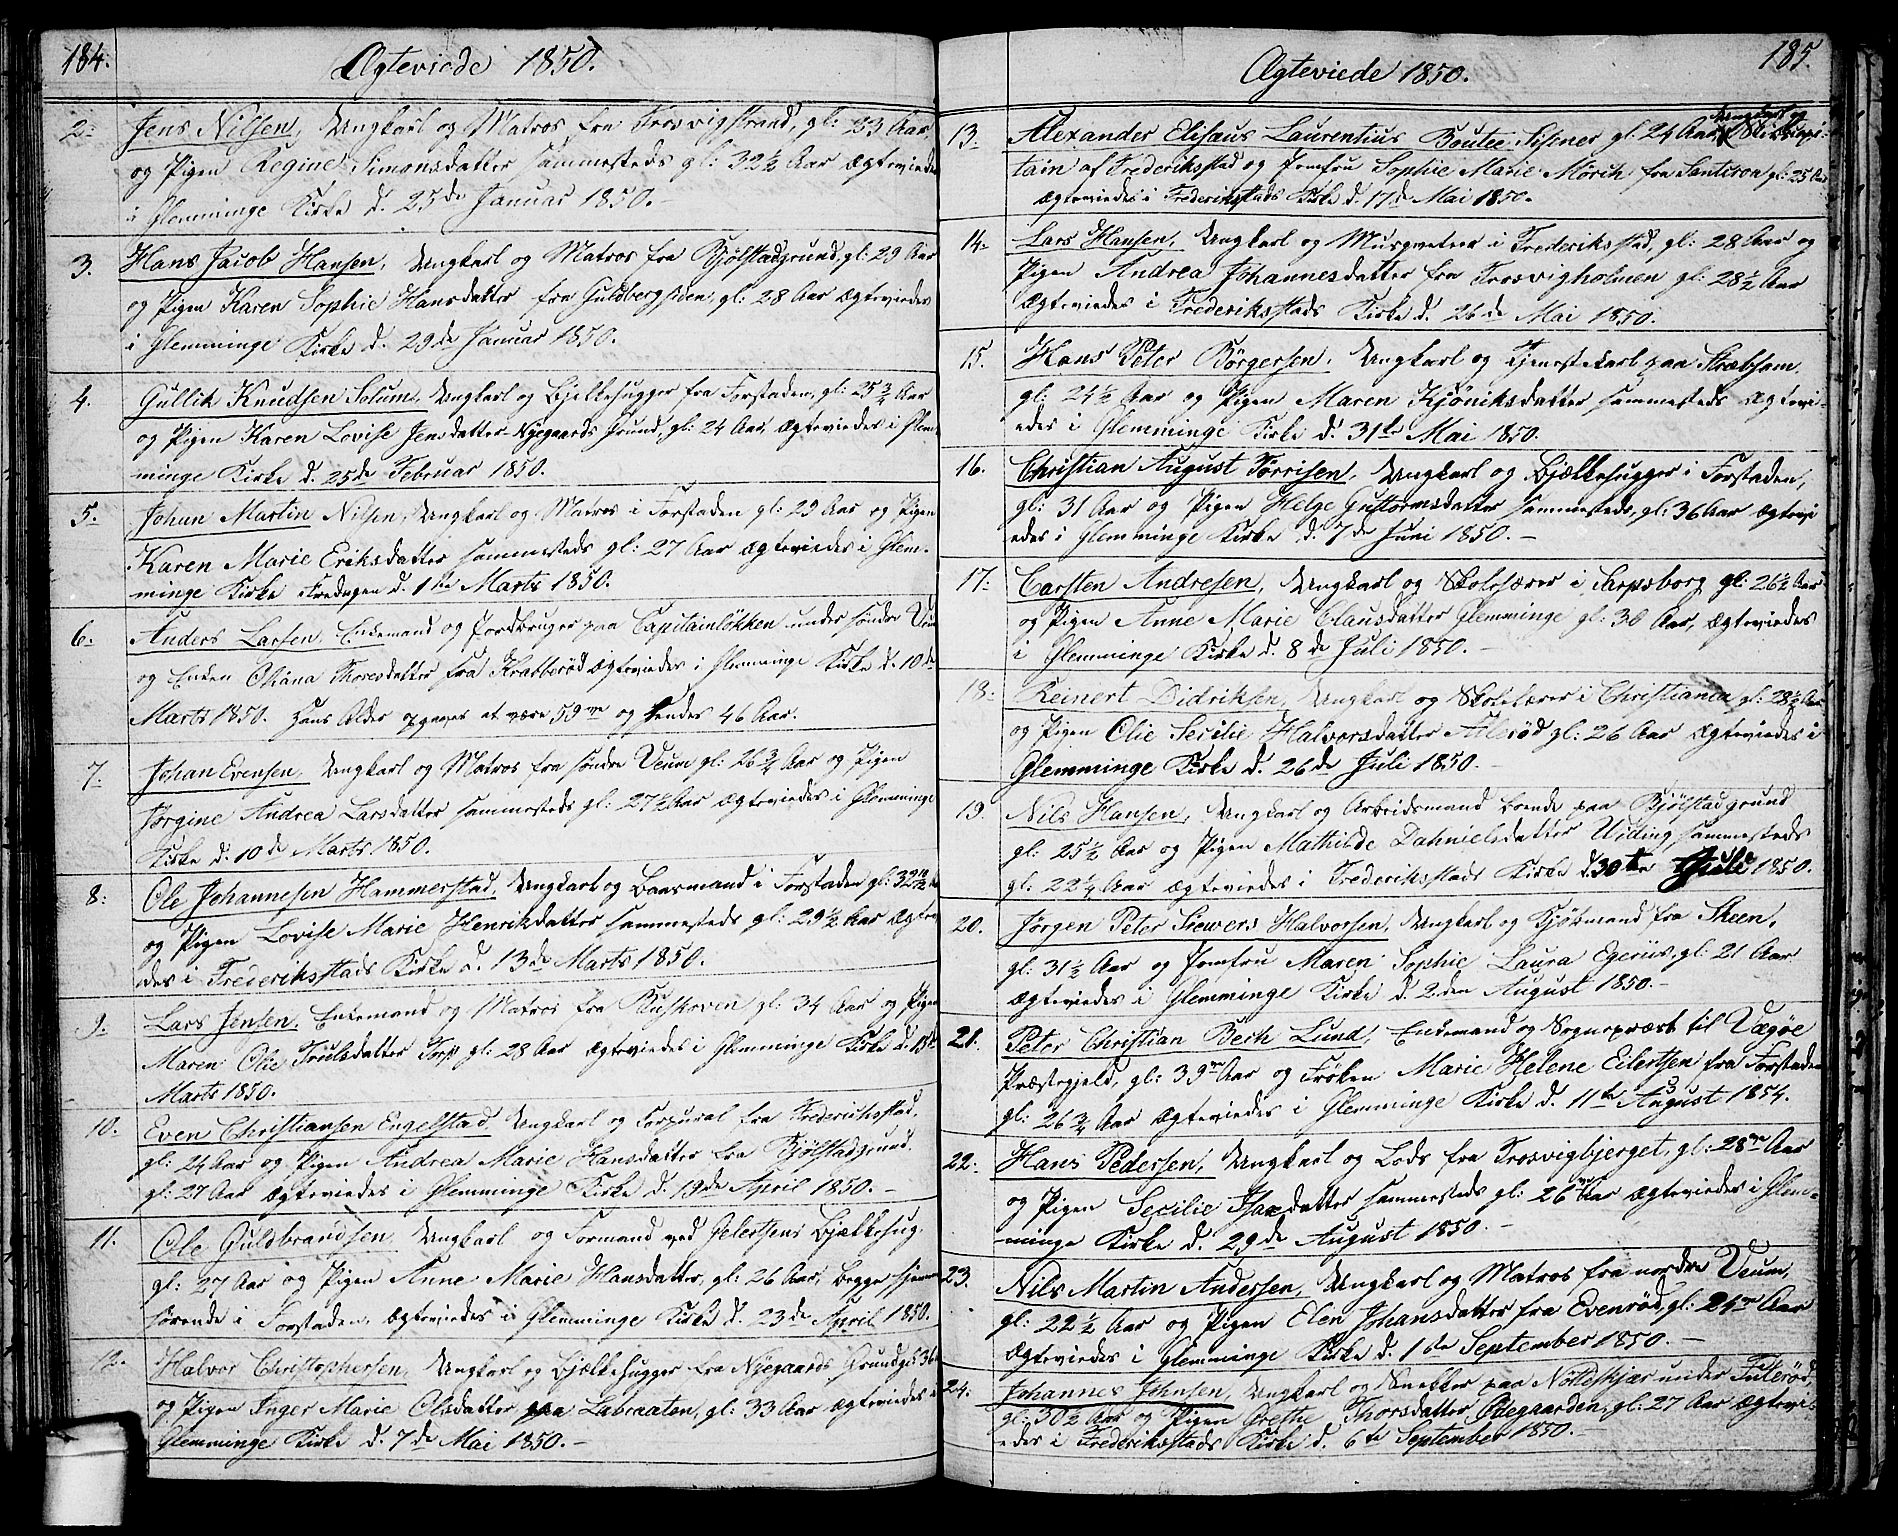 184.
Ægteviede 1850.
2. Jens Nilsen, Ungkarl og Matros fra Trosvigstrand, gl: 23 Aar,
og Pigen Regine Simonsdatter sammesteds gl: 32½ Aar Ægteviede
i Glemminge Kirke d. 25de Januar 1850.
3. Hans Jacob Hansen, Ungkarl og Matros fra Bjølstadgrund, gl: 29 Aar
og Pigen Karen Sophie Hansdatter fra Guldbergsiden, gl: 28 Aar Ægteviedes
i Glemminge Kirke d. 29de Januar 1850.
4. Gullik Knudsen Solum, Ungkarl og Bjelkehugger fra Forstaden, gl: 25¾ Aar
og Pigen Karen Lovise Jensdatter Nyegaards Grund, gl: 24 Aar, Ægteviedes i Glem-
minge Kirke d. 25de Februar 1850.
5. Johan Martin Nilsen, Ungkarl og Matros i Forstaden gl: 29 Aar og Pigen
Karen Marie Eriksdatter sammesteds gl: 27 Aar Ægteviedes i Glem-
minge Kirke Fredagen d. 1ste Marts 1850.
6. Anders Larsen, Enkemand og Jordbruger paa Capitainløkken under søndre Veum
og Enken Thoresdatter fra Krabberød Ægteviedes i Glemminge Kirke d. 10de
Marts 1850. Hans Alder opgaves at være 59 og hendes 46 Aar.
7. Johan Evensen, Ungkarl og Matros fra søndre Veum gl: 26¾ Aar og Pigen
Jørgine Andrea Larsdatter sammesteds gl: 27½ Aar Ægteviedes i Glemminge
Kirke d. 10de Marts 1850.
8. Ole Johannesen Hammerstad, Ungkarl og Baasmand i Forstaden gl: 32
og Pigen Lovise Marie Henriksdatter sammesteds gl: 29½ Aar Ægtevi
des i Frederiksstads Kirke d. 13de Marts 1850.
9. Lars Jensen, Enkemand og Matros fra Buskoven gl: 34 Aar og Pigen
Maren Olie Troulsdatter Torp gl: 28 Aar Ægteviedes i Glemminge Kirke d. 15de
Marts 1850.
10. Even Christiansen Engelstad, Ungkarl og Corporal fra Frederiksstad,
gl: 24 Aar og Pigen Andrea Marie Hansdatter fra Bjølstadgrund.
gl: 27 Aar Ægteviedes i Glemminge Kirke d. 19de April 1850. –
11. Ole Guldbrandsen, Ungkarl og Formand ved Bjælkehug.
gl: 27 Aar og Pigen Anne Marie Hansdatter, gl: 26 Aar, begge hjemme
hørende i Forstaden, Ægteviedes i Glemminge Kirke d. 23de April 1850.
12. Halvor Christophersen, Ungkarl og Bjælkehugger fra Nyegaards Grund gl: 36
og Pigen Inger Marie Olsdatter paa Labraaten, gl: 33 Aar Ægteviedes i
Glemminge Kirke d. 7de Mai 1850. –
185.
Ægteviede 1850.
Ungkarl og
13. Alexander Elisæus Laurentius Boutee Sissener gl: 24 Aar Skibscapi-
tain af Frederiksstad og Jomfru Sophie Marie Mörch fra gl: 25 Aar
Ægteviedes i Frederiksstads Kirke d. 17de Mai 1850.
14. Lars Hansen, Ungkarl og Murmester i Frederiksstad, gl: 28 Aar og
Pigen Andrea Johannesdatter fra Trosvigholmen gl: 28½ Aar
Ægteviedes i Frederiksstads Kirke d. 26de Mai 1850.
15. Hans Peter Börgersen, Ungkarl og Tjenestekarl paa Stræbsom,
gl: 24½ Aar og Pigen Maren Kjöniksdatter sammesteds Ægtevi-
edes i Glemminge Kirke d. 31te Mai 1850.
16. Christian August Torrisen, Ungkarl og Bjælkehugger i Forstaden,
gl: 31 Aar og Pigen Helge Guttormsdatter sammesteds, gl: 36 Aar Ægtevi
edes i Glemminge Kirke d. 7de Juni 1850. –
17. Carsten Andresen, Ungkarl og Skolelærer i Sarpsborg gl: 26½ Aar
og Pigen Anne Marie Clausdatter Glemminge gl: 30 Aar, Ægteviedes
i Glemminge Kirke d 8de Juli 1850. –
18. Reinert Didriksen, Ungkarl og Skolelærer i Christiania gl: 28½ Aar
og Pigen Olie Secilie Halvorsdatter Atlerød gl: 26 Aar Ægteviedes i
Glemminge Kirke d. 26de Juli 1850. –
19. Nils Hansen, Ungkarl og Arbeidsmand boende paa Bjølstadgrund
gl: 25½ Aar og Pigen Mathilde Dahnielsdatter Uiding, sammesteds
gl: 22¼ Aar Ægteviedes i Frederiksstads Kirke d. 30te Juli 1850.
20. Jørgen Peter Siewers Halvorsen, Ungkarl og Kjøbmand fra Skeen,
gl: 31½ Aar og Jomfru Maren Sophie Laura Egerius, gl: 21 Aar
Ægteviedes i Glemminge Kirke d. 2den August 1850. –
21. Peter Christian Berh Lund, Enkemand og Sognepræst til Vægøe
Præstegjeld, gl: 39 Aar og Frøken Marie Helene Eilertsen fra Forstaden
gl: 26¾ Aar Ægteviedes i Glemminge Kirke d. 11te August 1854.
22. Hans Pedersen, Ungkarl og Lods fra Trosvigbjerget, gl: 28 Aar
og Pigen Secilie Isaxdatter sammesteds gl: 26 Aar Ægteviedes i Glem-
minge Kirke d. 29de August 1850. –
23. Nils Martin Andersen, Ungkarl og Matros fra nordre Veum,
gl: 22½ Aar og Pigen Elen Johansdatter fra Evenrød, gl: Aar
Ægteviedes i Glemminge Kirke d. 1ste September 1850. –
24. Johannes Johnsen, Ungkarl og Snekker paa Nöddekjær under Tuterød,
gl: 30½ Aar og Pigen Grethe Thorsdatter Ødegaarden, gl: 27 Aar Ægtevi-
edes i Frederiksstads Kirke d. 6te September 1850. –